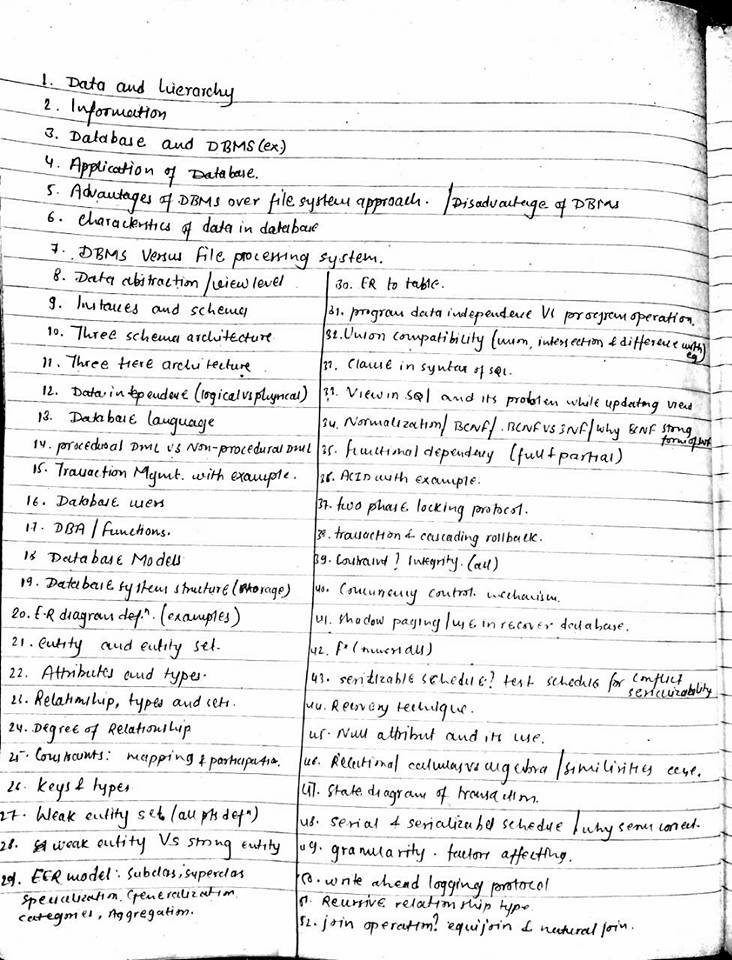 1. Data and hierarchy
2. Information
3. Database and DBMS (ex)
4. Application of Database.
5. Advantages of DBMS over file system approach. /Disadvantage of DBMS
6. Characteristics of data in database
7. DBMS Versus File processing system.
8. Data abstraction / view level
9. Instances and schema
10. Three schema architecture
11. Three tiere architecture
12. Data independence (logical vs physical)
13. Database language
14. procedural DML vs Non-procedural DML
15. Transaction Mgmt. with example.
16. Database users
17. DBA / Functions.
18 Database Models
19. Database system structure (storage)
20. E-R diagram defⁿ. (examples)
21. entity and entity set.
22. Attributes and types.
23. Relationship, types and sets.
24. Degree of Relationship
25. Constraints: mapping & participation.
26. Keys & types
27. Weak entity set (all pts defⁿ)
28. weak entity Vs strong entity
29. EER model: Subclass, superclass
Specialization, Generalization
categories, Aggregation.
30. ER to table.
31. program data independence VS program operation.
32. Union compatibility (union, intersection & difference with eg)
33. Clause in syntax of SQL.
33. View in SQL and its problem while updating view
34. Normalization / BCNF / . BCNF VS 3NF / why BCNF strong form of
35. functional dependency (full & partial)
36. ACID with example.
37. two phase locking protocol.
38. transaction & cascading rollback.
39. Constraint? Integrity. (all)
40. Concurrency control mechanism.
41. shadow paging / use in recover database.
42. F⁺ (numerals)
43. serializable schedule? test schedule for conflict serializability
44. Recovery technique.
45. Null attribut and its use.
46. Relational calculus vs algebra / similirities
47. State diagram of transaction.
48. serial & serializabel schedule / why serial correct.
49. granularity. factors affecting.
50. write ahead logging protocol
51. Recursive relationship type
52. join operation? equijoin & natural join.